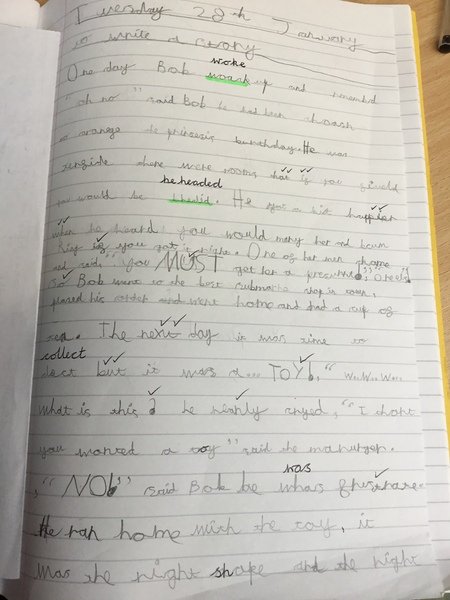 Tuesday 28th January
to write a story
woke
One day Bob woack up and remembed
"oh no" said Bob he had been
to arange the princesis burthday. He was
there were rooms that if you
beheaded
you would be. He got a bit happier
when he heard you would marry her and
King if you got it right. One of her men
and said, "you MUST get her a
So Bob went to the best submarine shop in town,
placed his order and went home and had a cup of
tea. The next day it was time to
collect
clect but it was a... TOY!, "w..w..w..
what is this? he nearly cryed, "I
you wanted a toy" said the manurger.
was
"NO!" said Bob he whas
He ran home with the toy, it
was the right shape and the right